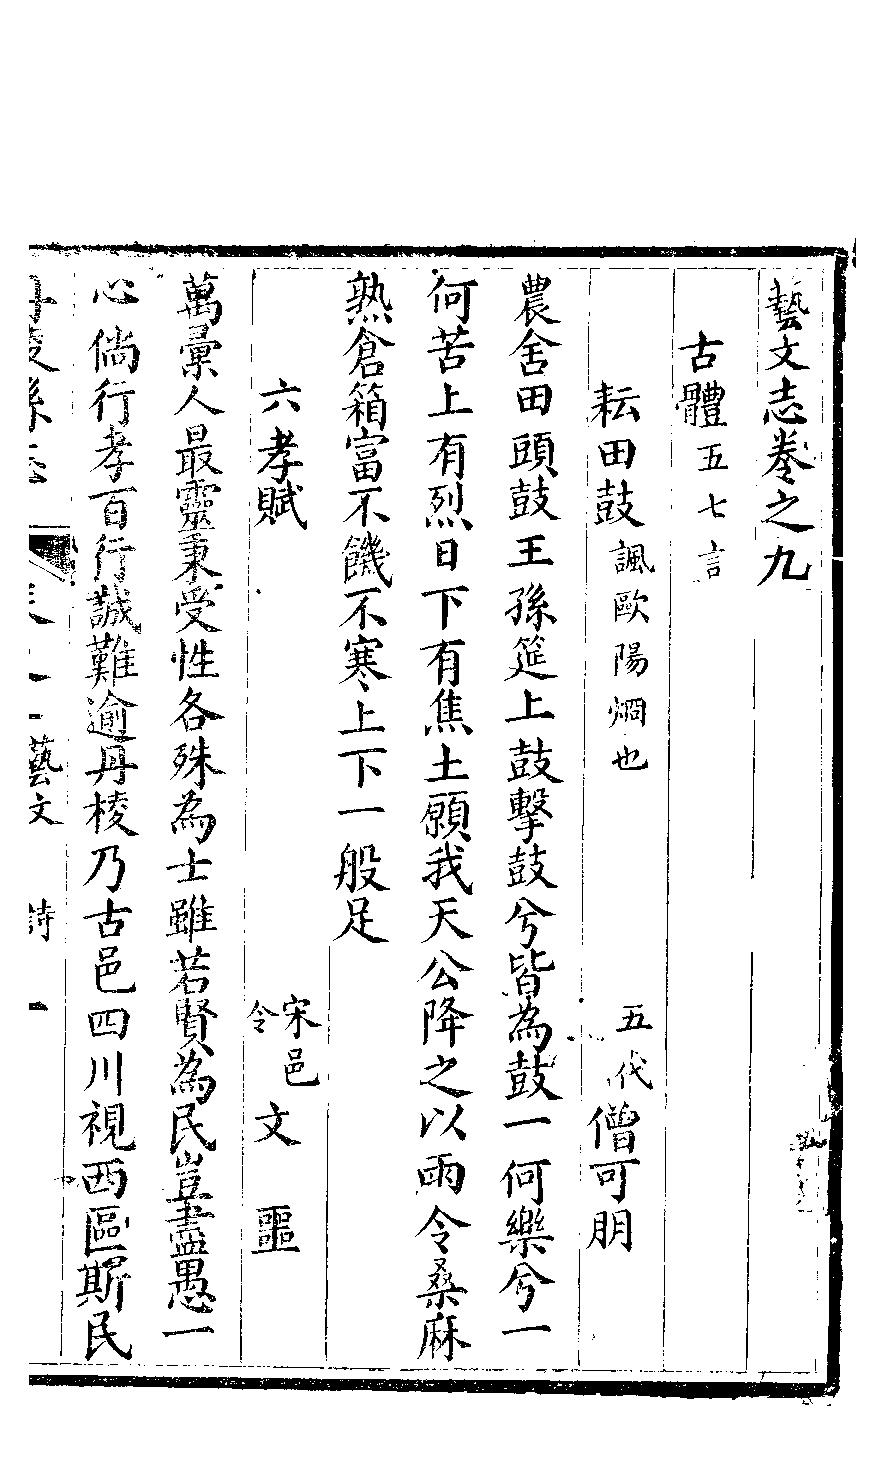 藝文志卷之九
古體五七言
耘田鼓諷歐陽炯也 五代僧可朋
農舍田頭鼓王孫筵上鼓擊鼓兮皆為鼓一何樂兮一
何苦上有烈日下有焦土願我天公降之以雨令桑麻
熟倉箱富不饑不寒上下一般足
六孝賦 宋邑令文䍢
萬彙人最靈秉受性各殊為士雖若賢為民豈盡愚一
心倘行孝百行誠難逾丹棱乃古邑四川視西區斯民
藝文 詩 一